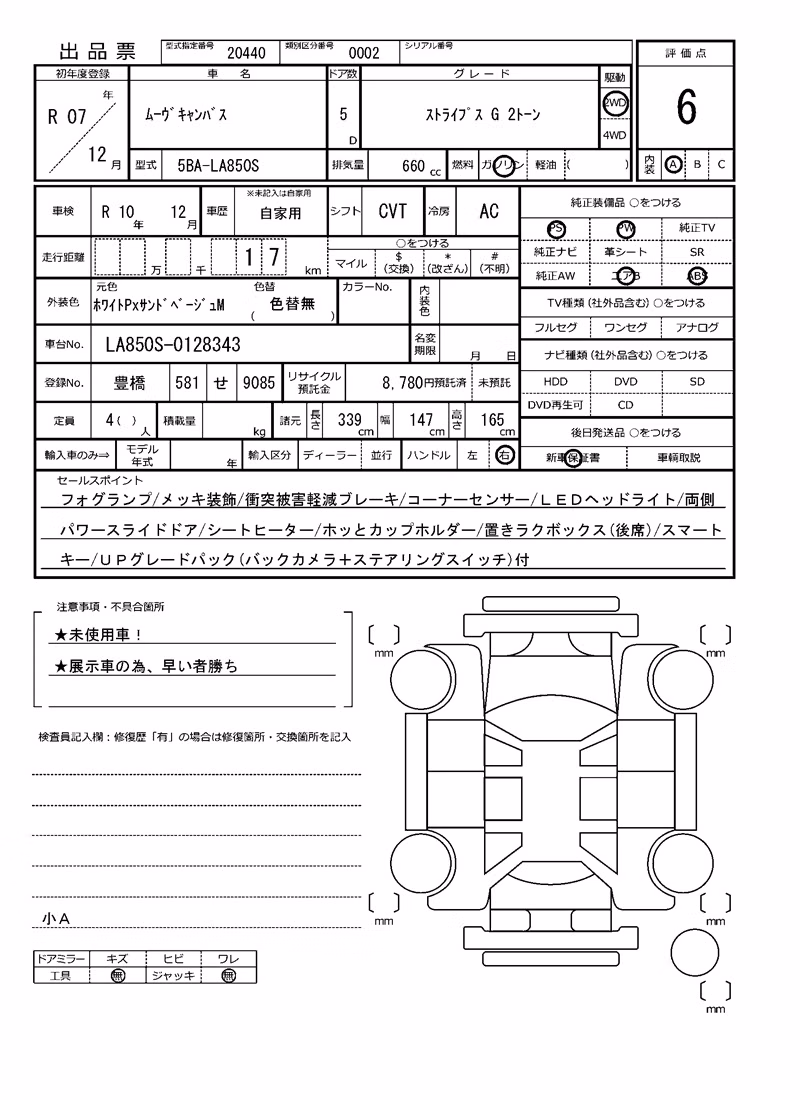 出品票 型式指定番号 20440 類別区分番号 0002 シリアル番号
評価点
6
内装 A B C
初年度登録 車名 ドア数 グレード 駆動
R 07 年 12 月 ムーヴキャンバス 5 D ストライプス G 2トーン 2WD 4WD
型式 5BA-LA850S 排気量 660 cc 燃料 ガソリン 軽油 ( )
車検 R 10 年 12 月 車歴 ※未記入は自家用 自家用 シフト CVT 冷房 AC
走行距離 万 千 1 7 km ○をつける
マイル $ (交換) * (改ざん) # (不明)
外装色 元色 ホワイトPxサンドベージュM 色替 ( 色替無 ) カラーNo. 内装色
車台No. LA850S-0128343 名変期限 月 日
登録No. 豊橋 581 せ 9085 リサイクル預託金 8,780円預託済 未預託
定員 4( ) 人 積載量 kg 諸元 長さ 339 cm 幅 147 cm 高さ 165 cm
輸入車のみ⇒ モデル年式 年 輸入区分 ディーラー 並行 ハンドル 左 右
純正装備品 ○をつける
PS PW 純正TV
純正ナビ 革シート SR
純正AW エアB ABS
TV種類(社外品含む) ○をつける
フルセグ ワンセグ アナログ
ナビ種類(社外品含む) ○をつける
HDD DVD SD
DVD再生可 CD
後日発送品 ○をつける
新車保証書 車輌取説
セールスポイント
フォグランプ/メッキ装飾/衝突被害軽減ブレーキ/コーナーセンサー/LEDヘッドライト/両側
パワースライドドア/シートヒーター/ホッとカップホルダー/置きラクボックス(後席)/スマート
キー/UPグレードパック(バックカメラ+ステアリングスイッチ)付
注意事項・不具合箇所
★未使用車!
★展示車の為、早い者勝ち
検査員記入欄:修復歴「有」の場合は修復箇所・交換箇所を記入
小A
ドアミラー キズ ヒビ ワレ
工具 無 ジャッキ 無
mm
mm
mm
mm
mm